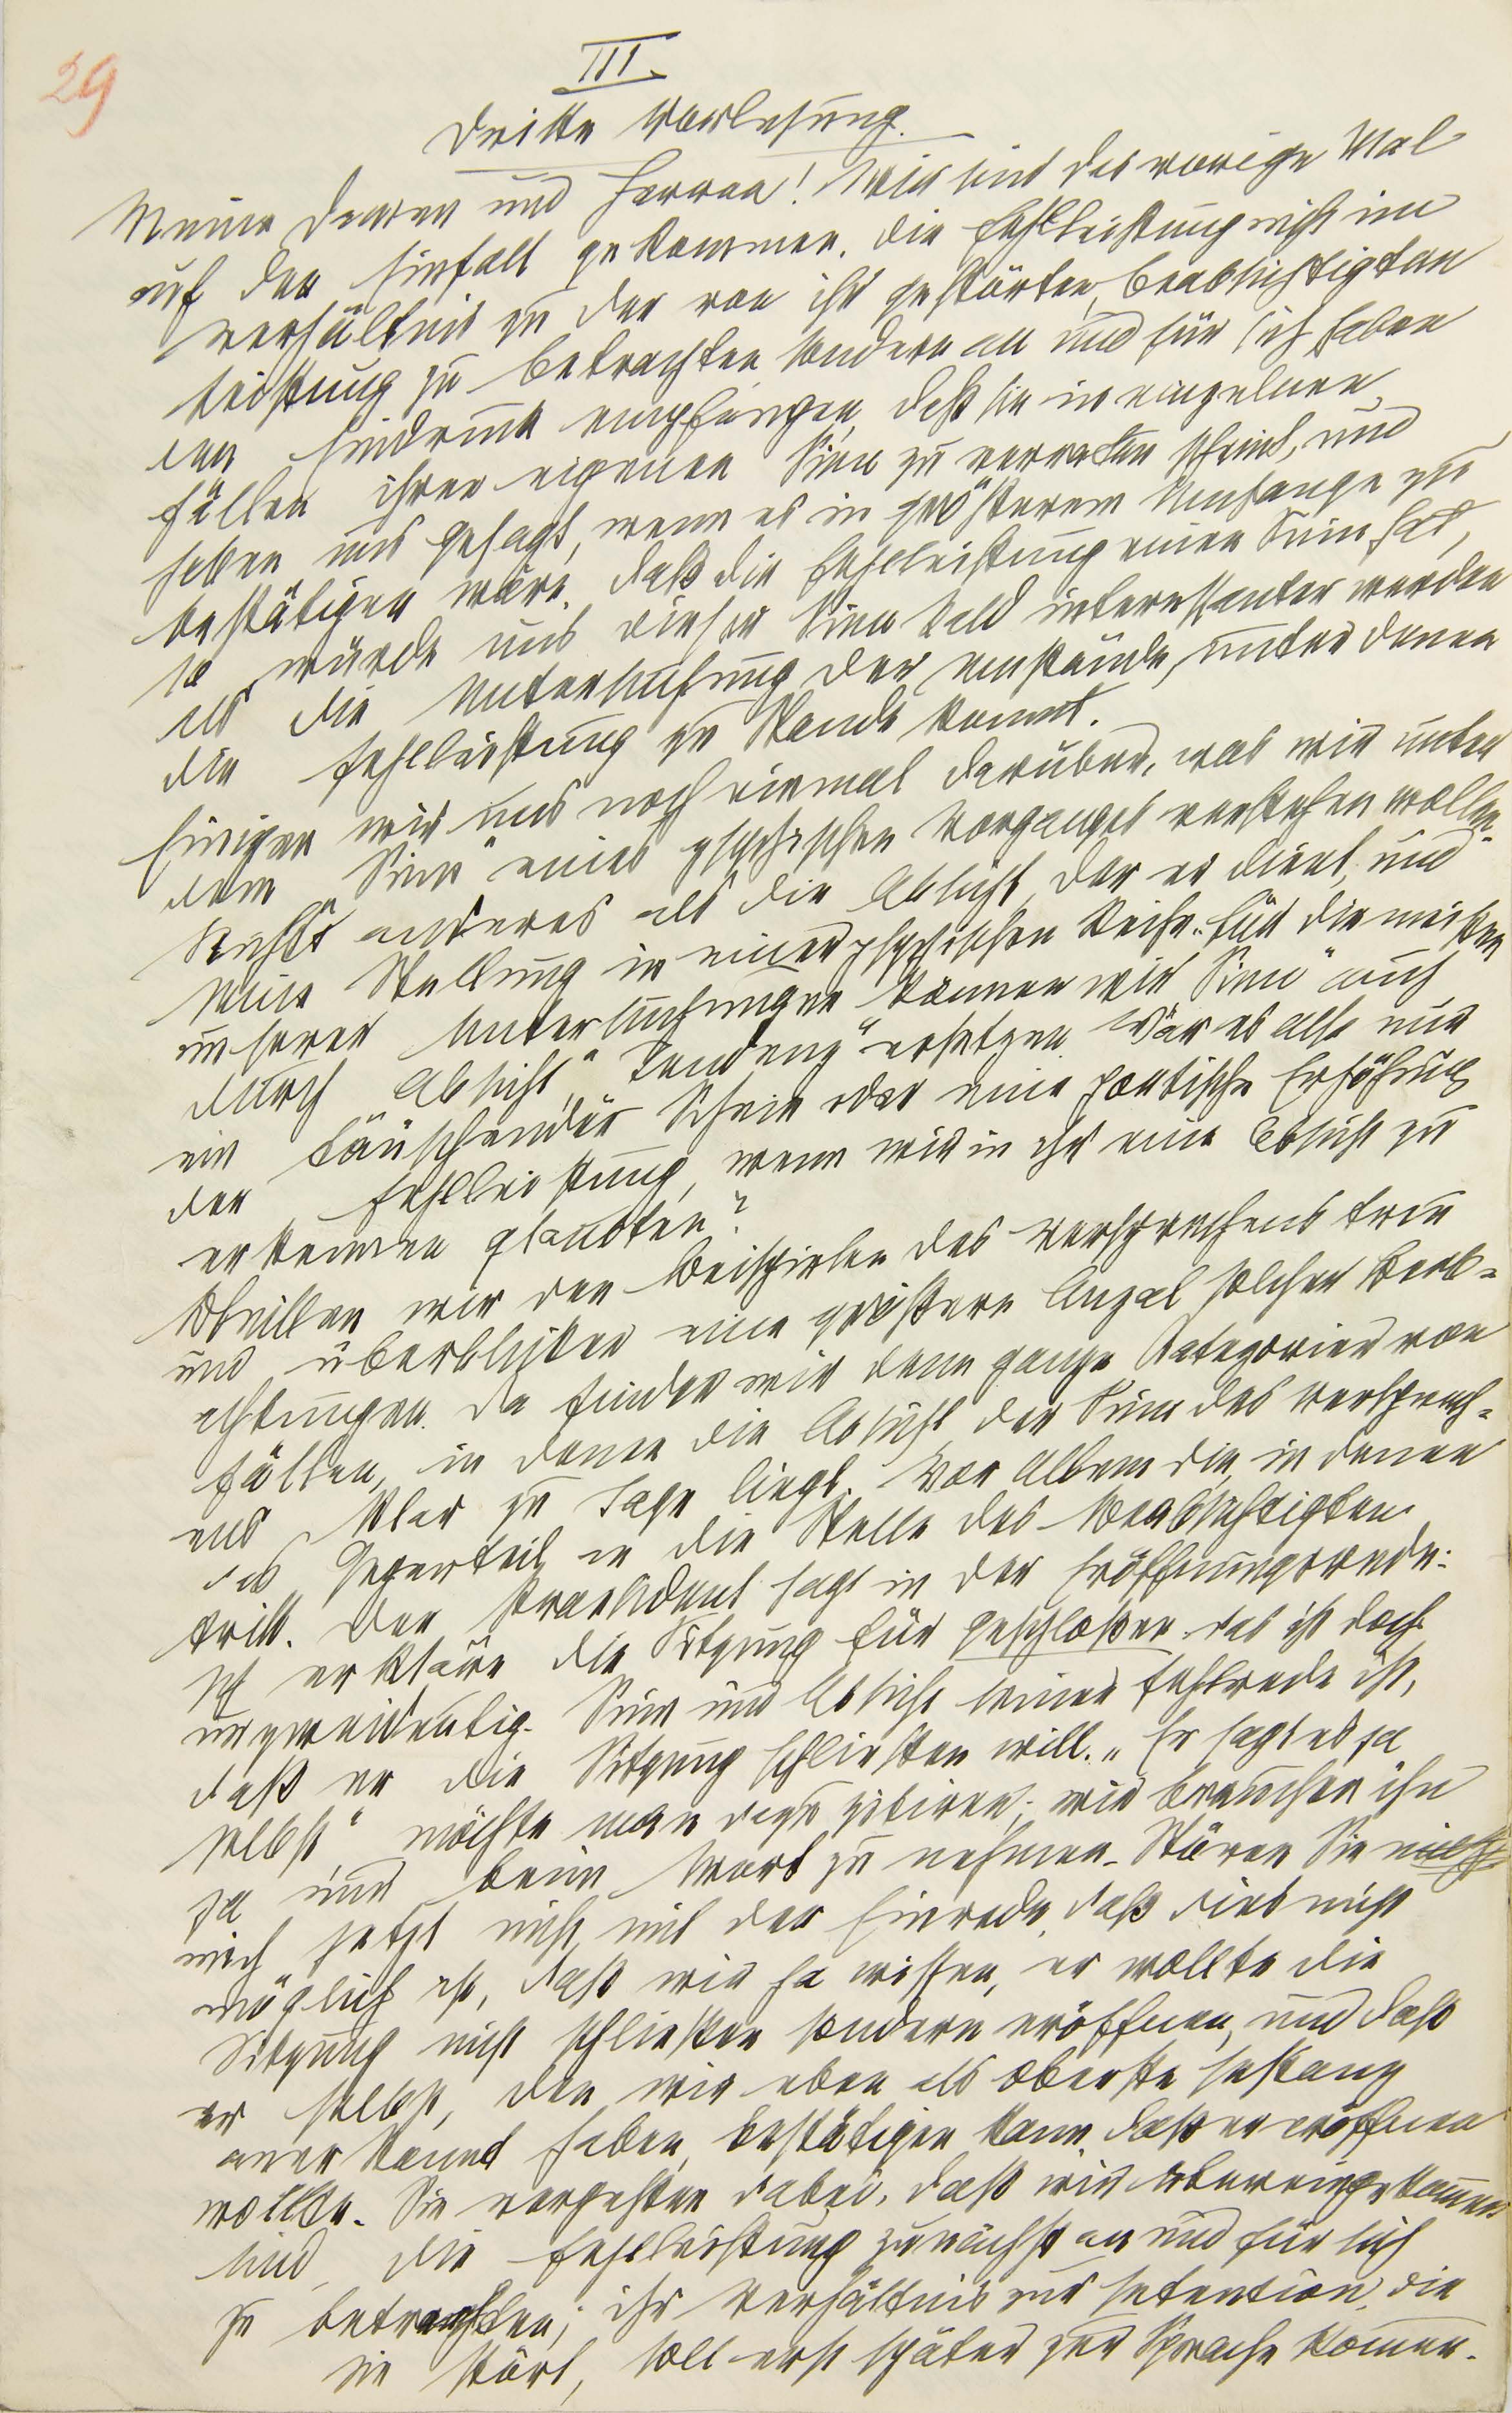 29
III.
Dritte Vorlesung.
Meine Damen und Herren! Wir sind das vorige Mal
auf den Einfall gekommen, die Fehlleistung nicht im
Verhältnis zu der von ihr gestörten, beabsichtigten
Leistung zu betrachten sondern an und für sich, haben
den Eindruck empfangen, daß sie in einzelnen
Fällen ihren eigenen Sinn zu verraten scheint, und
haben uns gesagt, wenn es in größerem Umfange zu
bestätigen wäre, daß die Fehlleistung einen Sinn hat,
so würde uns dieser Sinn bald interessanter werden
als die Untersuchung der Umstände, unter denen
die Fehlleistung zu Stande kommt.
Einigen wir uns noch einmal darüber, was wir unter
dem „Sinn“ eines psychischen Vorganges verstehen wollen.
Nichts anderes als die Absicht, der er dient, und
seine Stellung in einer psychischen Reihe. Für die meisten
unserer Untersuchungen können wir „Sinn“ auch
durch „Absicht“, „Tendenz“ ersetzen. Wär es also nur
ein täuschender Schein oder eine poetische Erhöhung
der Fehlleistung, wenn wir in ihr eine Absicht zu
erkennen glaubten?
Bleiben wir den Beispielen des Versprechens treu
und überblicken eine größere Anzal solcher Beob-
achtungen. Da finden wir denn ganze Kategorien von
Fällen, in denen die Absicht, der Sinn des Versprech-
ens klar zu Tage liegt. Vor Allem die, in denen
das Gegenteil an die Stelle des Beabsichtigten
tritt. Der Praesident sagt in der Eröffnungsrede:
Ich erkläre die Sitzung für geschloßen. Das ist doch
unzweideutig. Sinn und Absicht seiner Fehlrede ist,
daß er die Sitzung schließen will. „Er sagt es ja
selbst“ möchte man dazu zitiren; wir brauchen ihn
ja nur beim Wort zu nehmen. Stören Sie
mich jetzt nicht mit der Einrede, daß dies nicht
möglich ist, daß wir ja wissen, er wollte die
Sitzung nicht schließen sondern eröffnen, und daß
er selbst, den wir eben als oberste Instanz
anerkannt haben, bestätigen kann, daß er eröffnen
wollte. Sie vergeßen dabei, daß wir übereingekommen
sind, die Fehlleistung zunächst an und für sich
zu betrachten; ihr Verhältnis zur Intention, die
sie stört, soll erst später zur Sprache kommen.